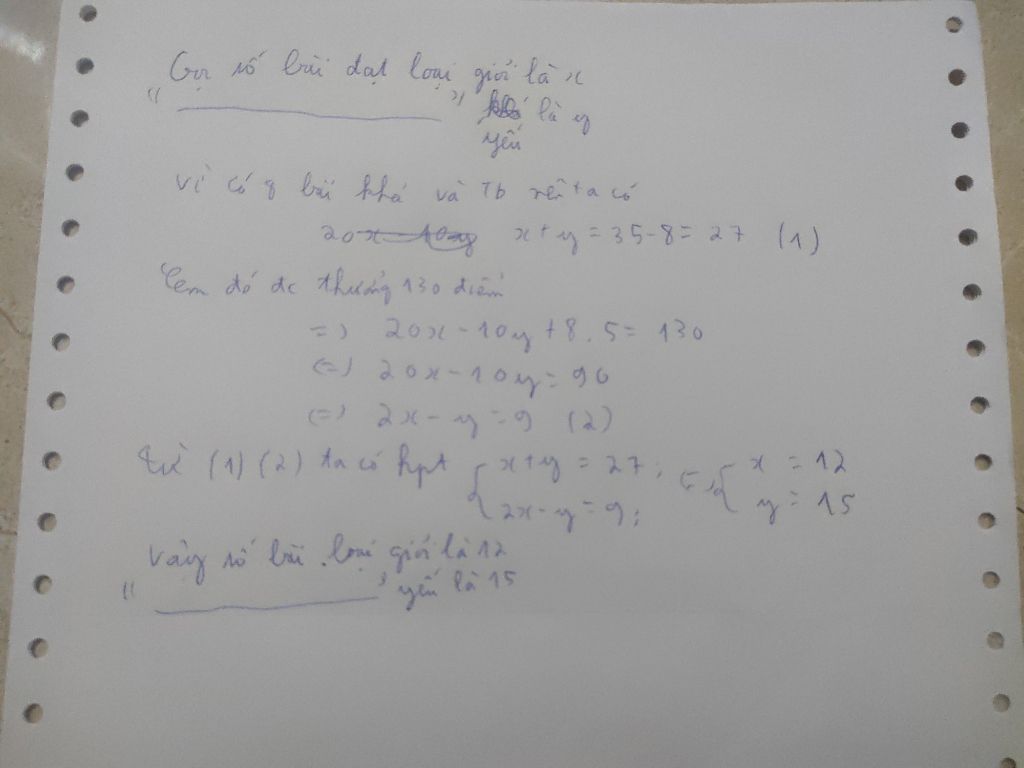 Gọi số bài đạt loại giỏi là x
" ________ " là y
yếu
Vì có 8 bài khá và Tb nên ta có
x + y = 35 - 8 = 27 (1)
đó đc thưởng 130 điểm
=> 20x - 10y + 8 . 5 = 130
<=> 20x - 10y = 90
<=> 2x - y = 9 (2)
Từ (1) (2) ta có hpt { x + y = 27 ; 2x - y = 9 ; <=> { x = 12 y = 15
Vậy số bài loại giỏi là 12
" ________ " yếu là 15